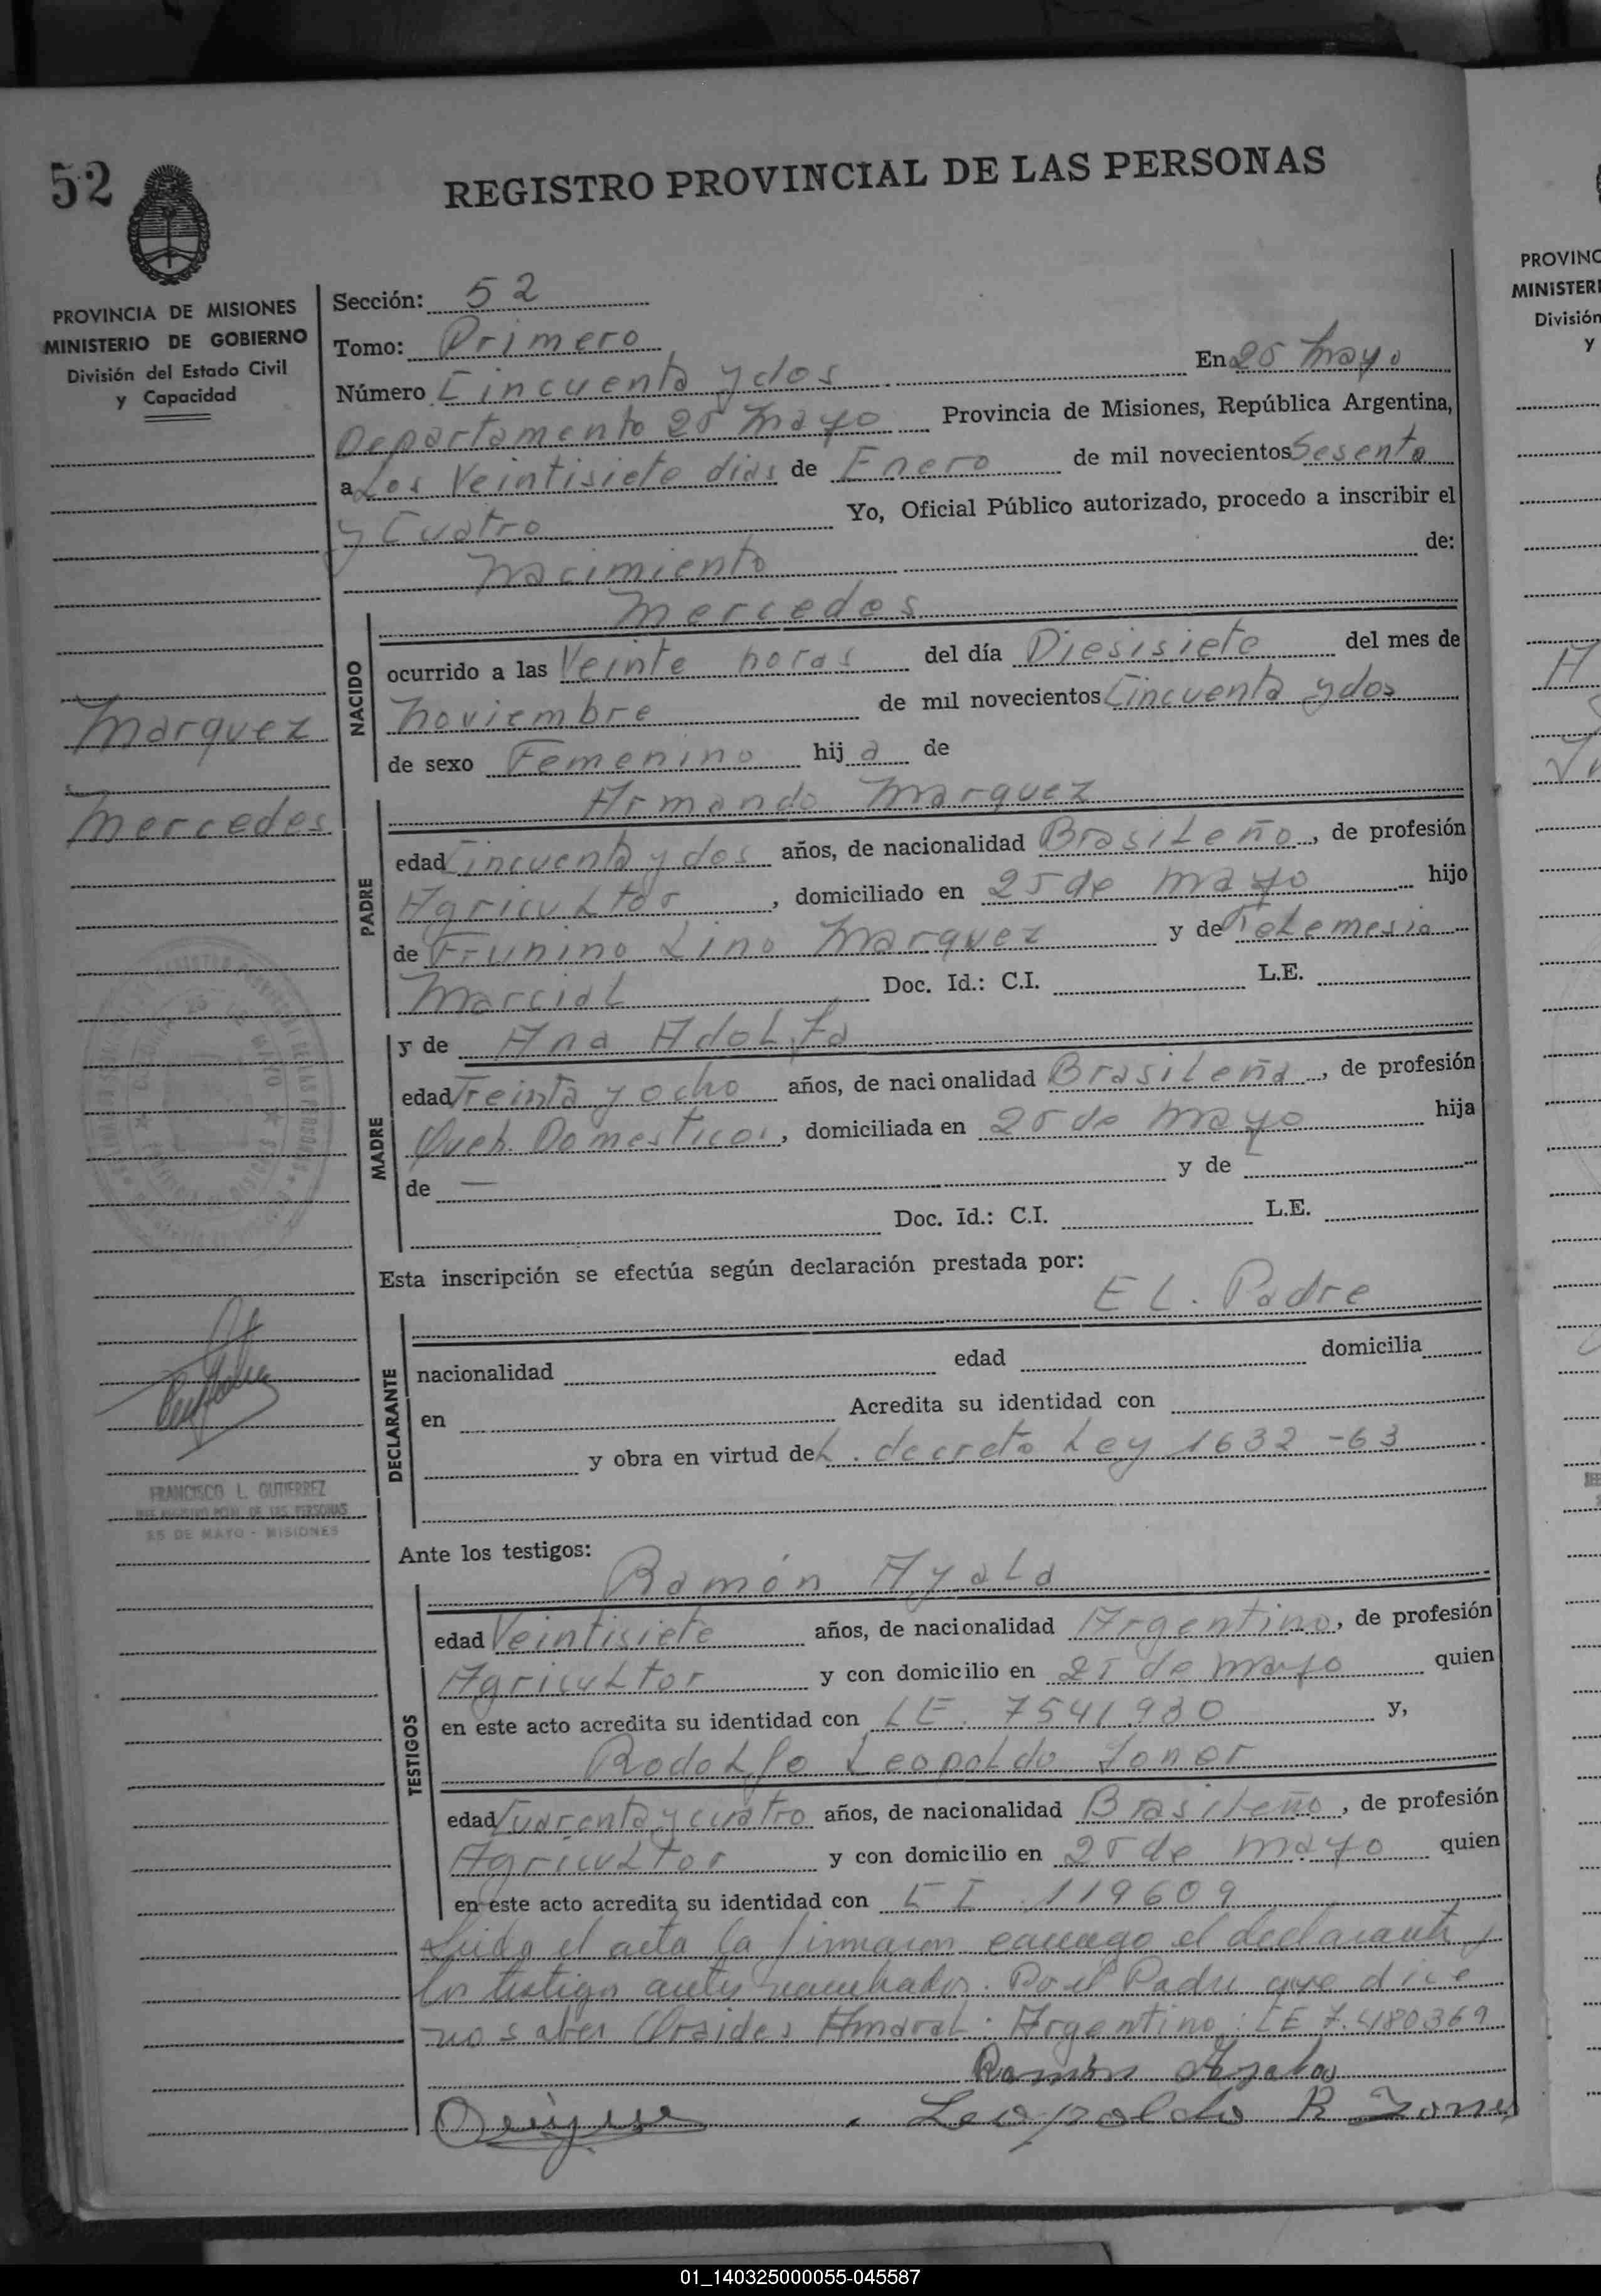 52
REGISTRO PROVINCIAL DE LAS PERSONAS
PROVINCIA DE MISIONES
MINISTERIO DE GOBIERNO
División del Estado Civil
y Capacidad
Sección: 52
Tomo: Primero
Número Cincuenta y dos En 25 Mayo
Departamento 25 Mayo Provincia de Misiones, República Argentina,
a Los Veintisiete dias de Enero de mil novecientos Sesenta
y Cuatro Yo, Oficial Público autorizado, procedo a inscribir el
Nacimiento de:
Mercedes
NACIDO
ocurrido a las Veinte horas del día Diesisiete del mes de
Noviembre de mil novecientos Cincuenta y dos
de sexo Femenino hija de
Marquez
Mercedes
Armando Marquez
PADRE
edad Cincuenta y dos años, de nacionalidad Brasileño, de profesión
Agricultor, domiciliado en 25 de Mayo hijo
de Lino Marquez y de
Marcial Doc. Id.: C.I. L.E.
MADRE
y de Ana Adolfa
edad Treinta y ocho años, de nacionalidad Brasileña, de profesión
Queh. Domesticos, domiciliada en 25 de Mayo hija
de — y de —
Doc. Id.: C.I. L.E.
Esta inscripción se efectúa según declaración prestada por:
El. Padre
DECLARANTE
nacionalidad edad domicilia
en Acredita su identidad con
y obra en virtud del. decreto Ley 1632-63
FRANCISCO L. GUTIERREZ
25 DE MAYO - MISIONES
Ante los testigos:
Ramón Ayala
TESTIGOS
edad Veintisiete años, de nacionalidad Argentino, de profesión
Agricultor y con domicilio en 25 de Mayo quien
en este acto acredita su identidad con LE. 7541930 y,
Rodolfo Leopoldo Toner
edad Cuarenta y cuatro años, de nacionalidad Brasileño, de profesión
Agricultor y con domicilio en 25 de Mayo quien
en este acto acredita su identidad con 119609
Leido el acta la firmaron conmigo el declarante y
los testigos antes nombrados. Por el Padre que dice
no saber Amaral. Argentino: LE 7.480369
Ramón Ayala
Leopoldo R
PROVINC
MINISTERI
División
y
01_140325000055-045587